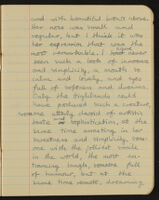 and with beautiful brows above.
Her nose was small and
regular, but I think it was
her expression that was the
most remarkable. I have never
seen such a look of innocence
and simplicity, a mouth so
calm and lovely, and eyes
full of softness and dreams.
Only the highlands could
have produced such a creature,
someone utterly devoid of artistic
taste or sophistication, at the
same time arresting in her
sweetness and simplicity, some
one with the jolliest smile
in the world, the most en-
trancing laugh, breathe full
of humour, but at the
same time remote, dreaming